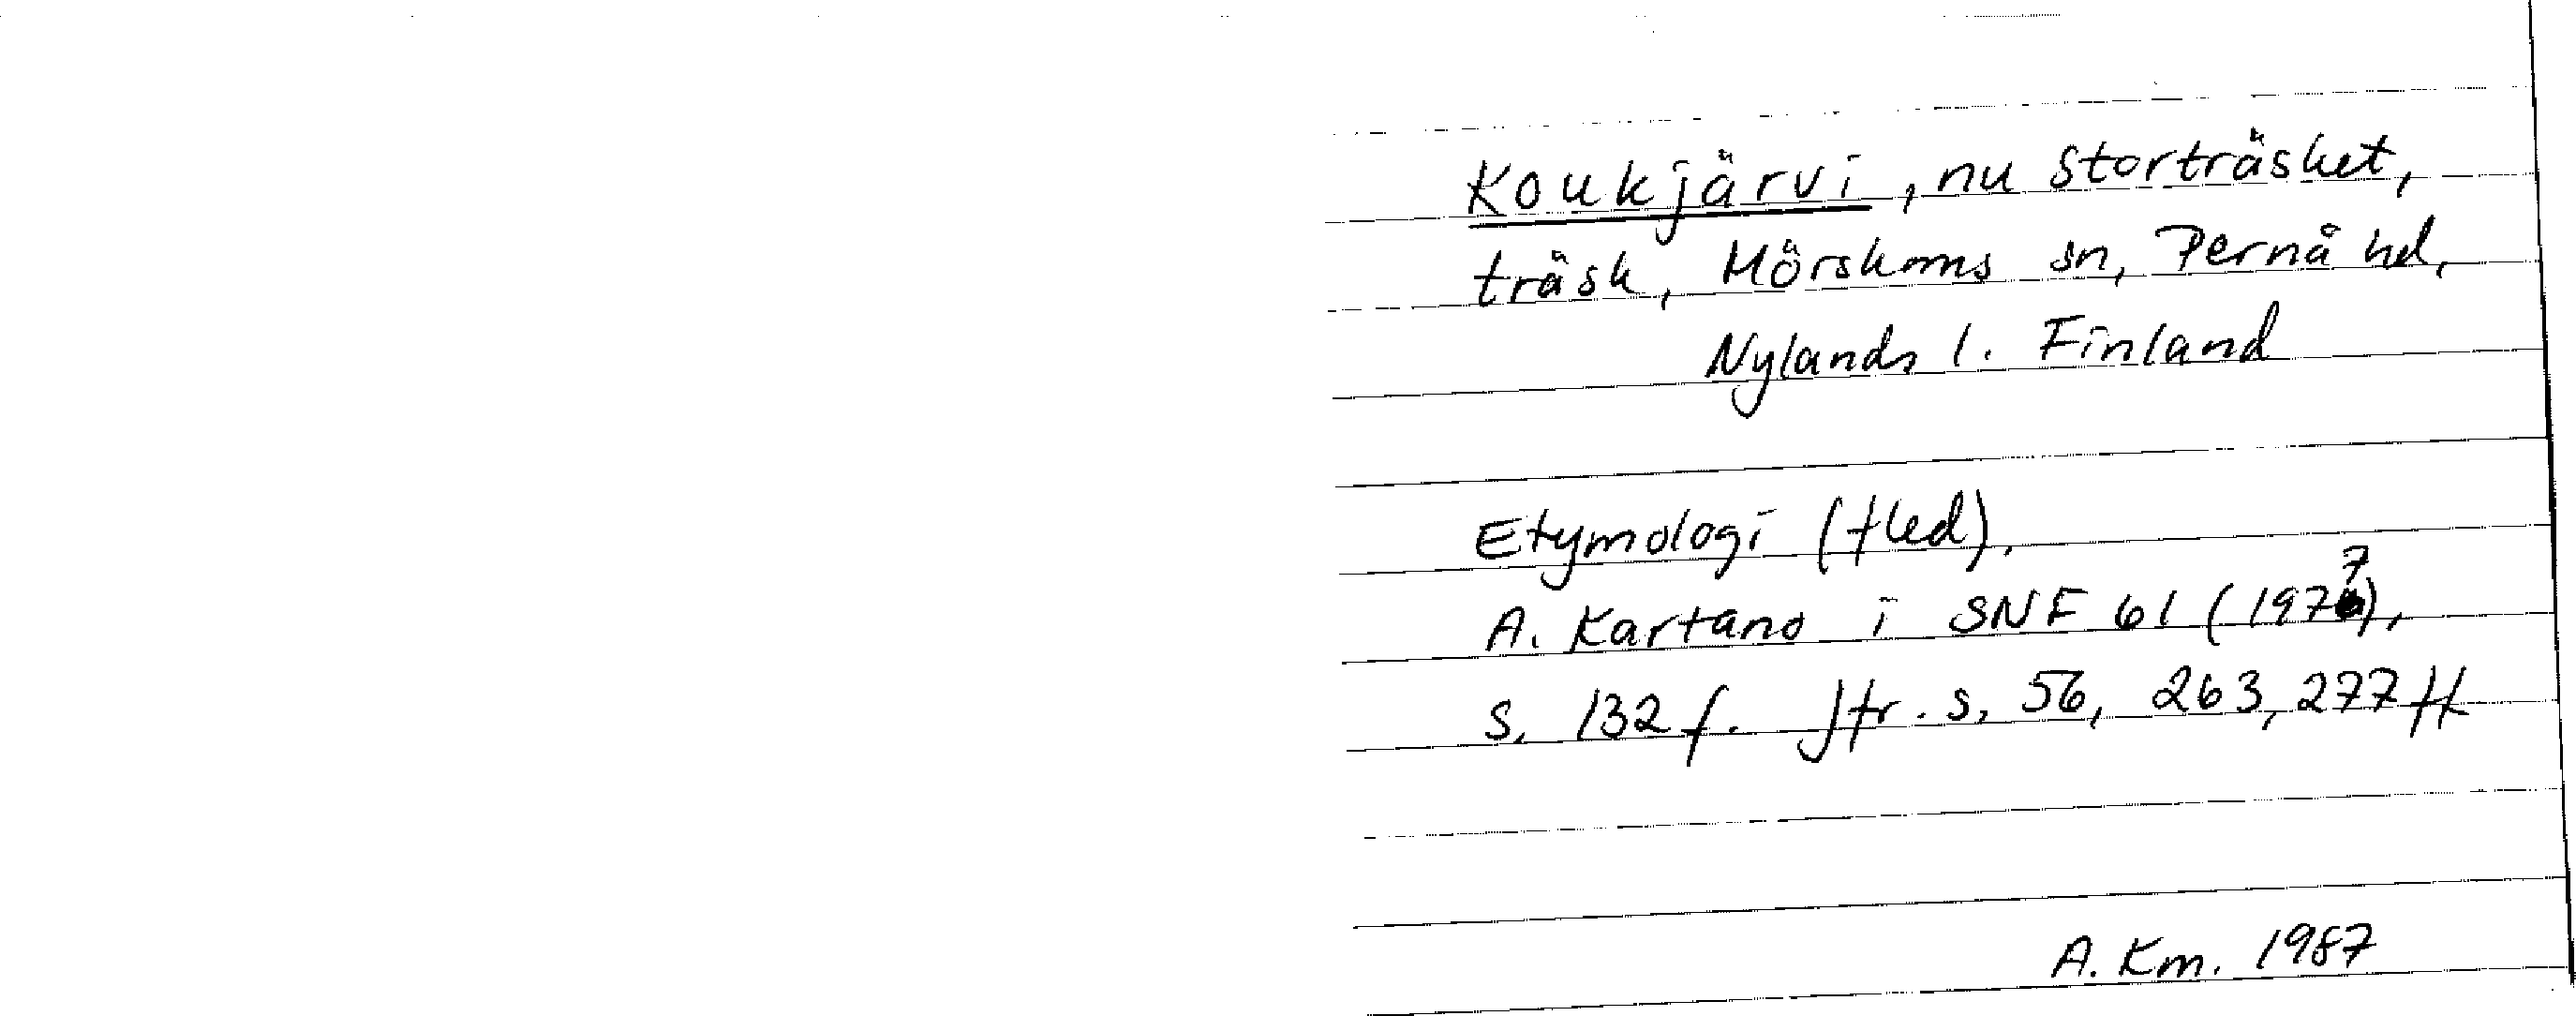 Koukjärvi, nu Storträsket,
träsk, Mörskoms sn, Pernå hd,
Nylands l. Finland
Etymologi (fled),
A. Kartano i SNF 61 (1977),
s. 132 f. Jfr. s. 56, 263, 277 ff
A. Km. 1987